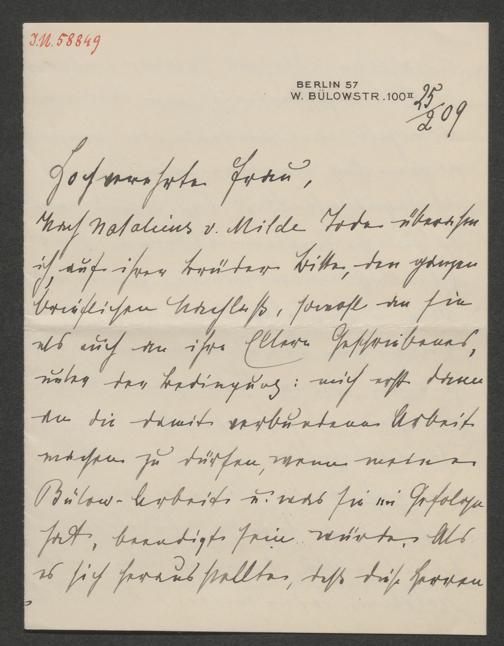 I.N. 58849
BERLIN 57
W. BÜLOWSTR. 100 II
25/2 09
Hochverehrte Frau,
Nach Nataliens v. Milde Tode übernahm
ich, auf ihrer Brüder Bitte, den ganzen
brieflichen Nachlaß, sowohl an sie
als auch an ihre Eltern Geschriebenes,
unter der Bedingung: mich erst dann
an die damit verbundene Arbeit
machen zu dürfen, wenn meine
Bülow-Arbeit u. was sie im Gefolge
hat, beendigt sein würde. Als
es sich herausstellte, daß diese Herren